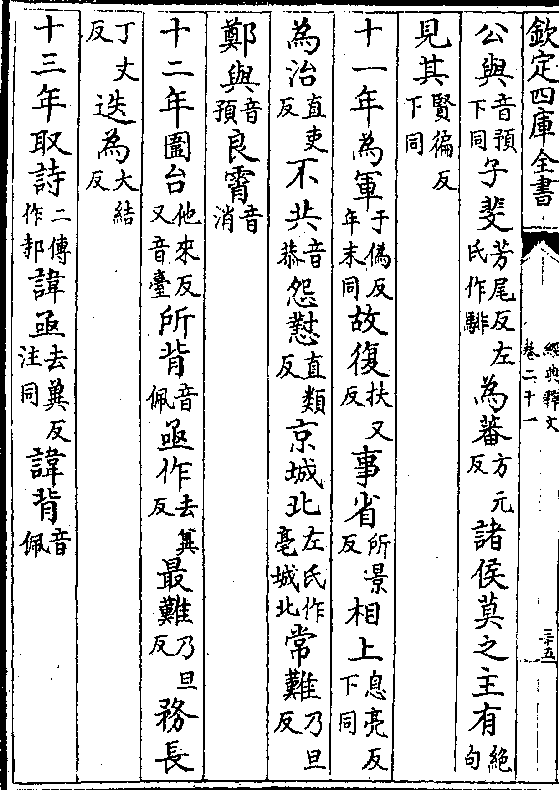 欽定四庫全書 經典釋文 卷二十一 三十五
公與音預下同子斐芳尾反左氏作騑為蕃方元反諸侯莫之主有絕句
見其賢徧反下同
十一年為軍于偽反年末同故復扶又反事省所景反相上息亮反下同
為治直吏反不共音恭怨懟直類反京城北左氏作亳城北常難乃旦反
鄭與音預良霄音消
十二年圍台他來反又音臺所背音佩亟作去冀反最難乃旦反務長
丁丈反迭為大結反
十三年取詩二傳作邿諱亟去冀反注同諱背音佩